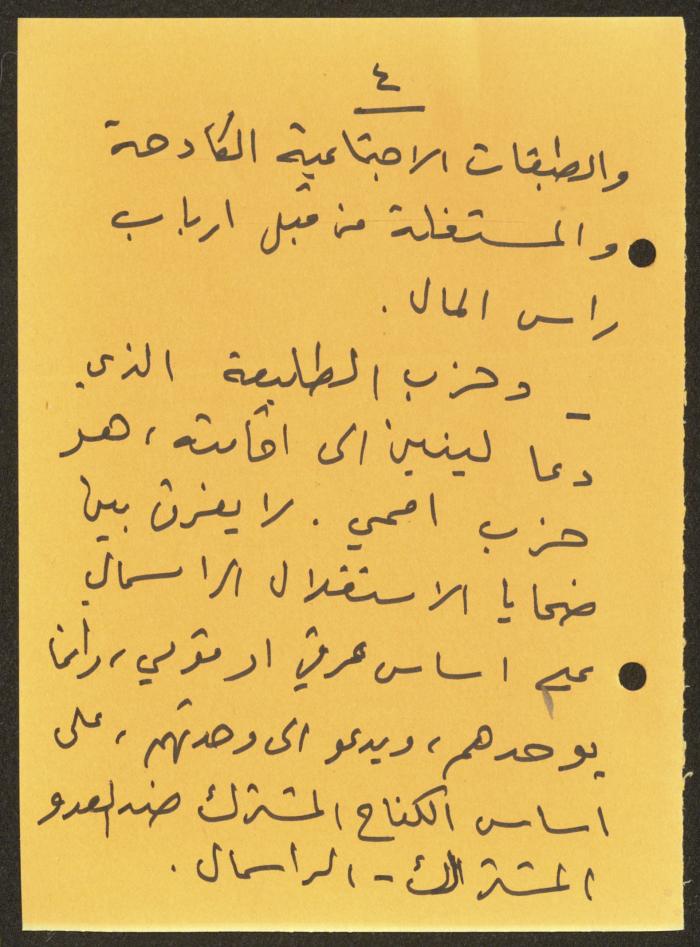 ٤
والطبقات الاجتماعية الكادحة
والمستغلة من قبل ارباب
راس المال .
_ وحزب الطليعة الذي
دعا لينين الى اقامته ، هو
حزب اممي . لا يفرق بين
ضحايا الاستغلال الراسمالي
على اساس عرقي او قومي ، وانما
يوحدهم ، ويدعو الى وحدتهم ، على
اساس الكفاح المشترك ضد العدو
المشترك - الراسمال .